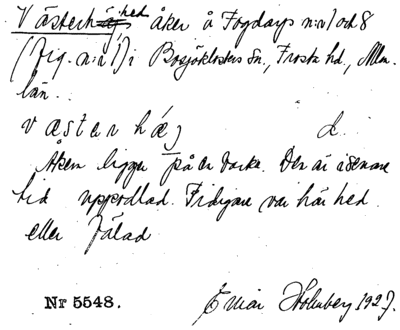 Västerhed åker å Fogdarps n:r 1 od 8
(Fig. n:r 1) i Bosjöklosters Sn., Frosta hd., Mlm.
län.
väster hä
Åkern ligger på en backe. Den är i senare
tid uppodlad. Tidigare var här hed
eller fälad
Nr 5548.
Einar Holmberg 1927.